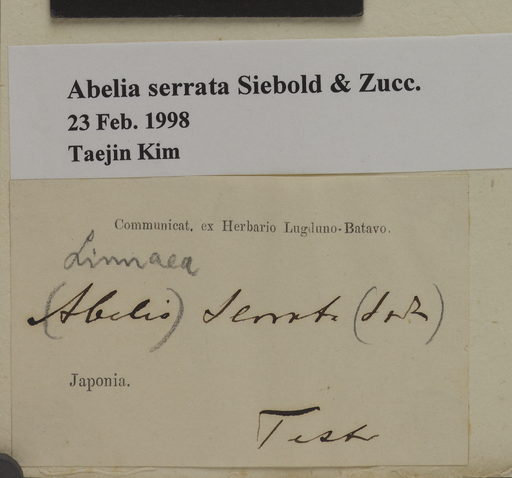 Abelia serrata Siebold & Zucc.
23 Feb. 1998
Taejin Kim
Communicat. ex Herbario Lugduno-Batavo.
Linnaea
(Abelia) serrata
Japonia.